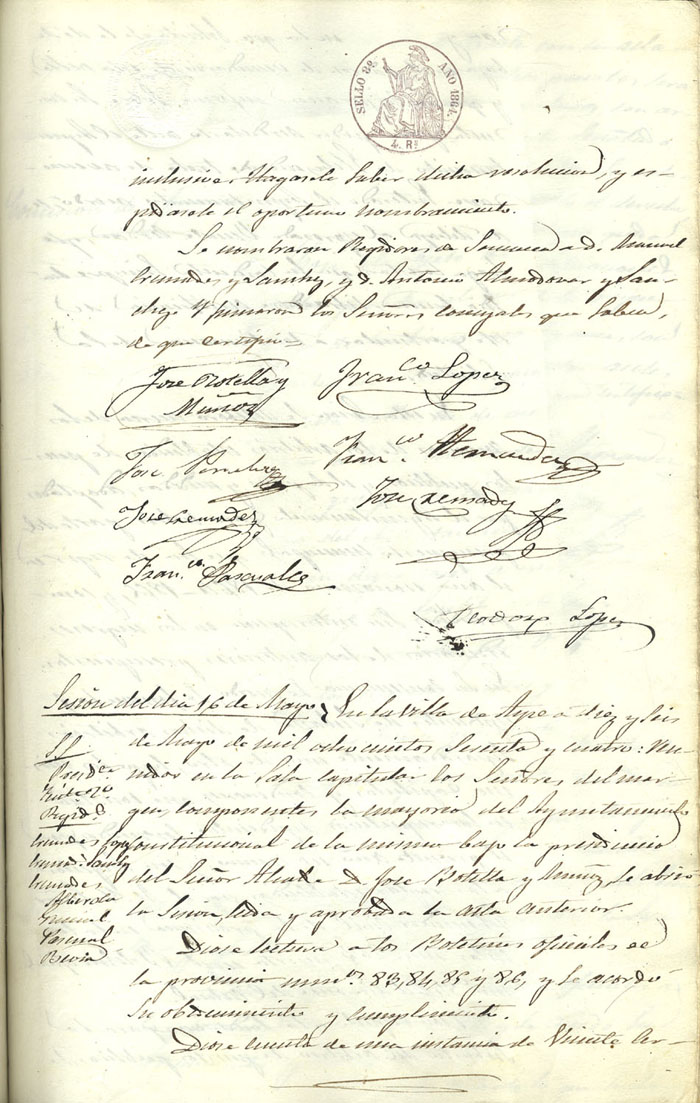 SELLO 8º AÑO 1864.
4 Rs
inclusive. Hagasele saber dicha resolucion, y es-
pidasele el oportuno nombramiento.
Se nombraron Regidores de Semana a D. Manuel
y Sanchez, y D. Antonio Almodovar y San-
chez. Y firmaron los Señores concejales que saben,
de que certifico =
Jose Botella y
Muñoz
Franco. Lopez
Jose
Franco. Hernandez
Jose
Jose
Franco. Pascual
Teodoro Lopez
Sesion del dia 16 de Mayo } En la villa de Aspe a diez y seis
de Mayo de mil ochocientos sesenta y cuatro: reu-
nidos en la Sala capitular los Señores del mar-
gen, componentes la mayoria del Ayuntamiento
Constitucional de la misma bajo la presidencia
del Señor Alcalde D. Jose Botella y Muñoz, se abrio
la Sesion, leida y aprobada la acta anterior.
SS
Preside
Regids.
Alberola
Pascual
Diose lectura a los Boletines oficiales de
la provincia numos 83, 84, 85 y 86, y se acordó
su obedecimiento y cumplimiento.
Diose cuenta de una instancia de Vicente Cer-